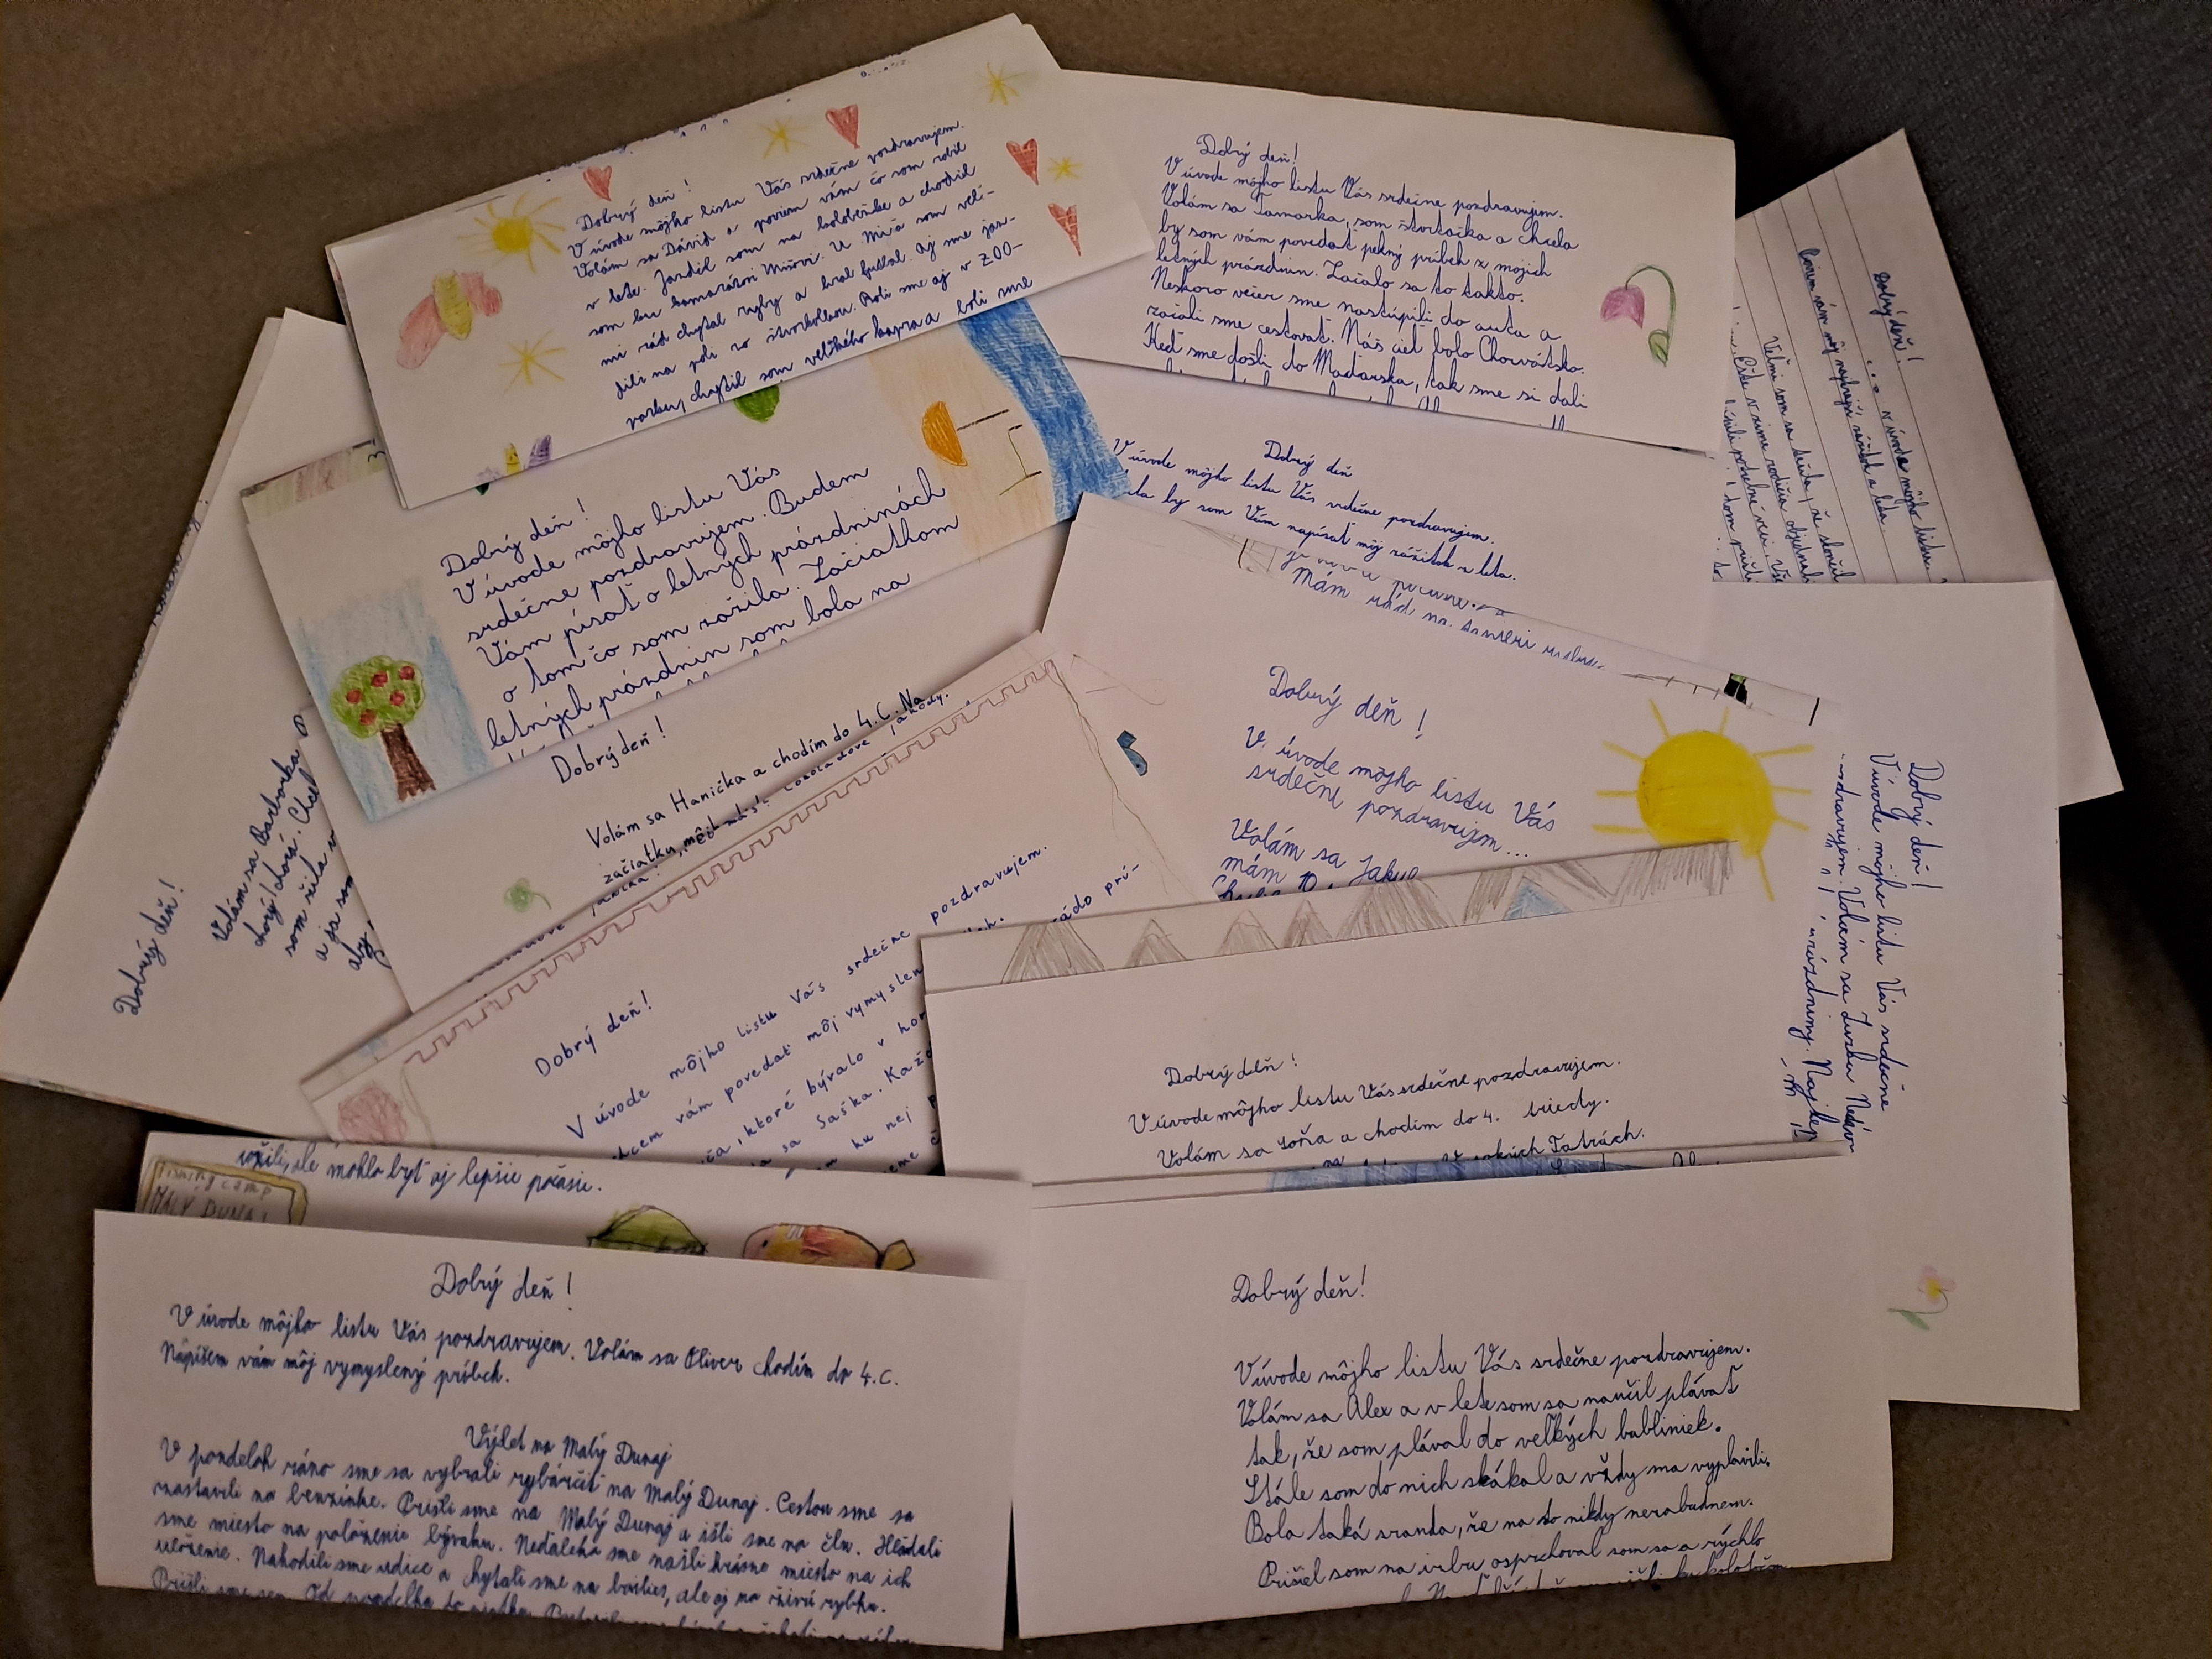 Dobrý deň!
V úvode môjho listu Vás srdečne pozdravujem.
Volám sa Dávid a poviem vám čo som robil
v lete. Jazdil som na kolobežke a chodil
som ku kamarátovi Mišovi. U Miša som vel-
mi rád chytal ryby a hral futbal. Aj sme jaz-
dili na poli zo štvorkolkou. Boli sme aj v ZOO-
parku, chytil som veľkého kapra a boli sme
Dobrý deň!
V úvode môjho listu Vás srdečne pozdravujem.
Volám sa Tamarka, som štvrtačka a chcela
by som vám povedať pekný príbeh z mojich
letných prázdnin. Začalo sa to takto.
Neskoro večer sme nastúpili do auta a
začali sme cestovať. Náš cieľ bolo Chorvátsko.
Keď sme došli do Maďarska, tak sme si dali
Dobrý deň!
v úvode môjho listu
Veľmi som sa tešila, že
Dobrý deň!
V úvode môjho listu Vás
srdečne pozdravujem. Budem
Vám písať o letných prázdninách
o tom čo som zažila. Začiatkom
letných prázdnin som bola na
Dobrý deň
V úvode môjho listu Vás srdečne pozdravujem.
by som Vám napísať môj zážitok z leta.
Mám rád
Dobrý deň!
Volám sa Hanička a chodím do 4.C. Na
začiatku môjho
Dobrý deň!
V úvode môjho listu Vás
srdečne pozdravujem...
Volám sa Jakub
mám 10
Dobrý deň!
Volám sa Barborka
chorý
som žila v
a ja som
aby
Dobrý deň!
V úvode môjho listu Vás srdečne pozdravujem.
chcem vám povedať môj vymyslen
ktoré bývalo v hor
sa Saška. Kaž
ku nej
Dobrý deň!
V úvode môjho listu Vás srdečne
pozdravujem. Volám sa Zuzka Nedáv
prázdniny. Najlep
Dobrý deň!
V úvode môjho listu Vás srdečne pozdravujem.
Volám sa Soňa a chodím do 4. triedy.
Vysokých Tatrách.
užili, ale mohlo byť aj lepšie počasie.
Fishing camp
MALÝ DUNAJ
Dobrý deň!
V úvode môjho listu Vás pozdravujem. Volám sa Oliver chodím do 4.C.
Napíšem vám môj vymyslený príbeh.
Výlet na Malý Dunaj
V pondelok ráno sme sa vybrali rybárčiť na Malý Dunaj. Cestou sme sa
zastavili na benzínke. Prišli sme na Malý Dunaj a išli sme na čln. Hľadali
sme miesto na položenie bývaku. Neďaleko sme našli krásne miesto na ich
uloženie. Nahodili sme udice a chytali sme na boilies, ale aj na živú rybku.
Prišli sme sem. Od pondelka do piatku.
Dobrý deň!
V úvode môjho listu Vás srdečne pozdravujem.
Volám sa Alex a v lete som sa naučil plávať
tak, že som plával do veľkých bubliniek.
Stále som do nich skákal a vždy ma vyplavili.
Bola taká sranda, že na to nikdy nezabudnem.
Prišiel som na izbu osprchoval som sa a rýchlo